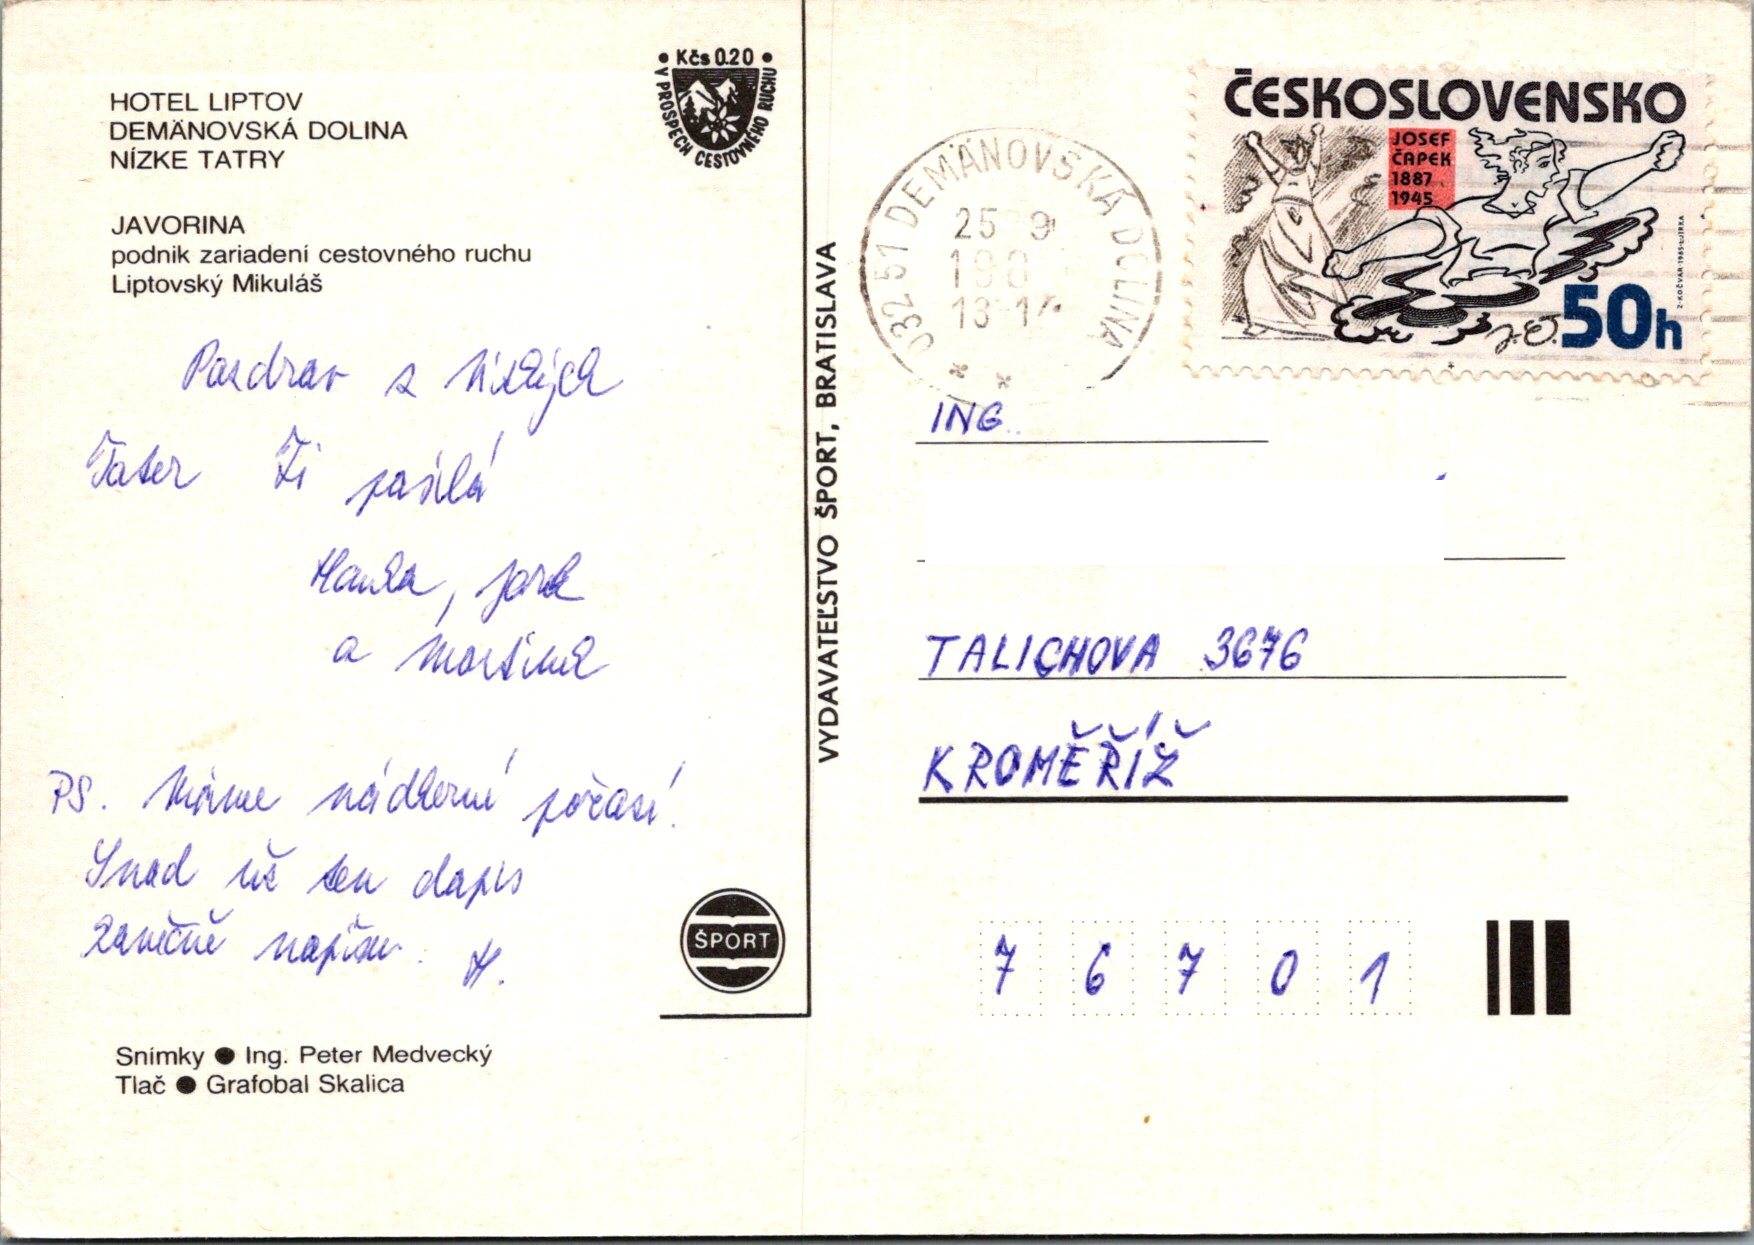 HOTEL LIPTOV
DEMÄNOVSKÁ DOLINA
NÍZKE TATRY
JAVORINA
podnik zariadení cestovného ruchu
Liptovský Mikuláš
• Kčs 0.20 •
V PROSPECH CESTOVNÉHO RUCHU
Pozdrav z Nízkých
Tater Ti posílá
Hanka, Jarek
a Martina
PS. Máme nádherné počasí!
Snad už ten dopis
konečně napíšu. H.
ŠPORT
Snímky ● Ing. Peter Medvecký
Tlač ● Grafobal Skalica
VYDAVATEĽSTVO ŠPORT, BRATISLAVA
032 51 DEMÄNOVSKÁ DOLINA
25 9
13-14
ČESKOSLOVENSKO
JOSEF
ČAPEK
1887
1945
50h
ING.
TALICHOVA 3676
KROMĚŘÍŽ
76701